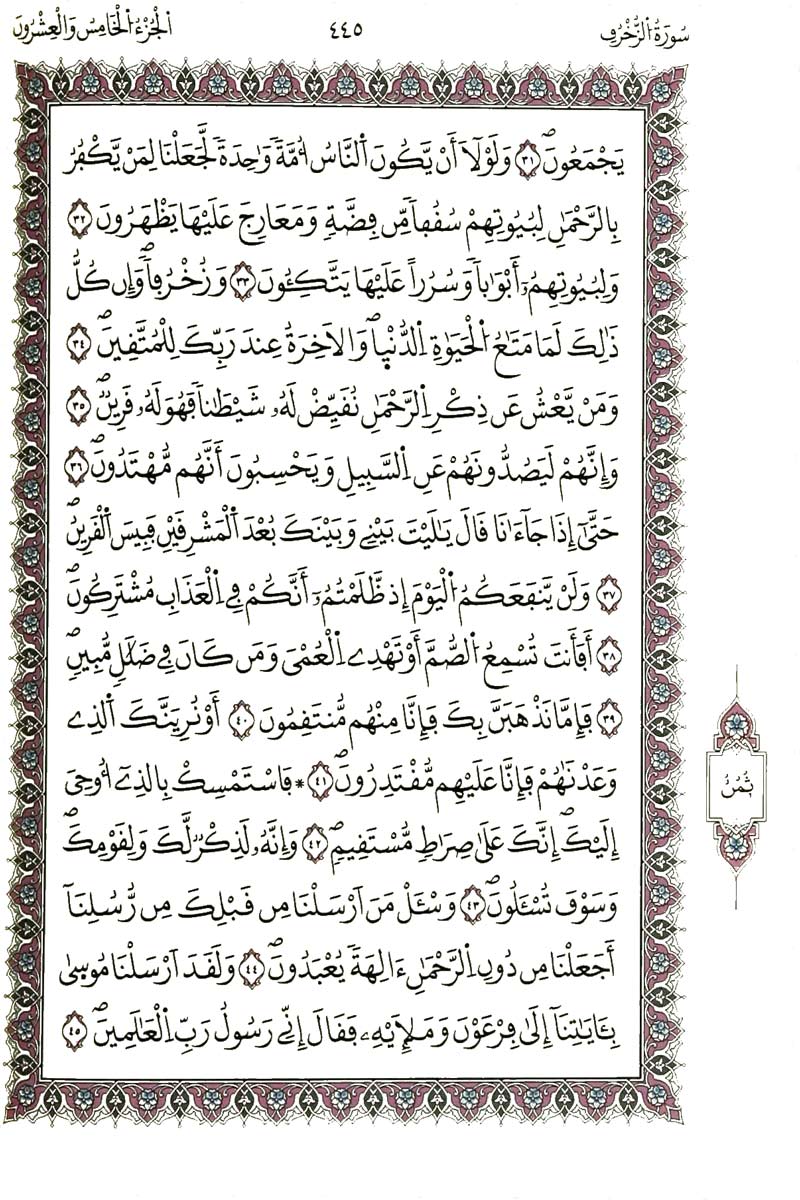 سُورَةُ الزُّخْرُفِ ٤٤٥ الْجُزْءُ الْخَامِسُ وَالْعِشْرُونَ
يَجْمَعُونَۖ ٣١ وَلَوْلَآ أَنْ يَّكُونَ اَ۬لنَّاسُ أُمَّةٗ وَٰحِدَةٗ لَّجَعَلْنَا لِمَنْ يَّكْفُرُ
بِالرَّحْمَٰنِ لِبُيُوتِهِمْ سُقُفاٗ مِّن فِضَّةٖ وَمَعَارِجَ عَلَيْهَا يَظْهَرُونَ ٣٢
وَلِبُيُوتِهِمُۥٓ أَبْوَٰباٗ وَسُرُراً عَلَيْهَا يَتَّكِـُٔونَ ٣٣ وَزُخْرُفاٗۖ وَإِن كُلُّ
ذَٰلِكَ لَمَا مَتَٰعُ اُ۬لْحَيَوٰةِ اِ۬لدُّنْيَاۖ وَالَاخِرَةُ عِندَ رَبِّكَ لِلْمُتَّقِينَۖ ٣٤
وَمَنْ يَّعْشُ عَن ذِكْرِ اِ۬لرَّحْمَٰنِ نُقَيِّضْ لَهُۥ شَيْطَٰناٗ فَهُوَ لَهُۥ قَرِينٞۖ ٣٥
وَإِنَّهُمْ لَيَصُدُّونَهُمْ عَنِ اِ۬لسَّبِيلِ وَيَحْسِبُونَ أَنَّهُم مُّهْتَدُونَۖ ٣٦
حَتَّىٰٓ إِذَا جَآءَٰنَا قَالَ يَٰلَيْتَ بَيْنِے وَبَيْنَكَ بُعْدَ اَ۬لْمَشْرِقَيْنِ فَبِيسَ اَ۬لْقَرِينُۖ
٣٧ وَلَنْ يَّنفَعَكُمُ اُ۬لْيَوْمَ إِذ ظَّلَمْتُمُۥٓ أَنَّكُمْ فِے اِ۬لْعَذَابِ مُشْتَرِكُونَۖ
٣٨ أَفَأَنتَ تُسْمِعُ اُ۬لصُّمَّ أَوْ تَهْدِے اِ۬لْعُمْيَ وَمَن كَانَ فِے ضَلَٰلٖ مُّبِينٖۖ
٣٩ فَإِمَّا نَذْهَبَنَّ بِكَ فَإِنَّا مِنْهُم مُّنتَقِمُونَ ٤٠ أَوْ نُرِيَنَّكَ اَ۬لذِے
وَعَدْنَٰهُمْ فَإِنَّا عَلَيْهِم مُّقْتَدِرُونَۖ ٤١ * فَاسْتَمْسِكْ بِالذِےٓ أُوحِيَ
إِلَيْكَۖ إِنَّكَ عَلَىٰ صِرَٰطٖ مُّسْتَقِيمٖۖ ٤٢ وَإِنَّهُۥ لَذِكْرٞ لَّكَ وَلِقَوْمِكَۖ
وَسَوْفَ تُسْـَٔلُونَۖ ٤٣ وَسْـَٔلْ مَنَ اَرْسَلْنَا مِن قَبْلِكَ مِن رُّسُلِنَآ
أَجَعَلْنَا مِن دُونِ اِ۬لرَّحْمَٰنِ ءَالِهَةٗ يُعْبَدُونَۖ ٤٤ وَلَقَدَ اَرْسَلْنَا مُوسَىٰ
بِـَٔايَٰتِنَآ إِلَىٰ فِرْعَوْنَ وَمَلَإِيْهِۦ فَقَالَ إِنِّے رَسُولُ رَبِّ اِ۬لْعَٰلَمِينَۖ ٤٥
ثُمُنُ